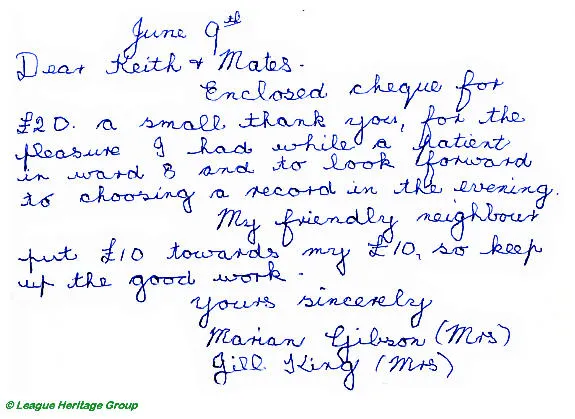 June 9th
Dear Keith & Mates.
Enclosed cheque for
£20. a small thank you, for the
pleasure I had while a patient
in ward 8 and to look forward
to choosing a record in the evening.
My friendly neighbour
put £10 towards my £10, so keep
up the good work.
Yours sincerely
Marian Gibson (Mrs)
Gill King (Mrs)
© League Heritage Group